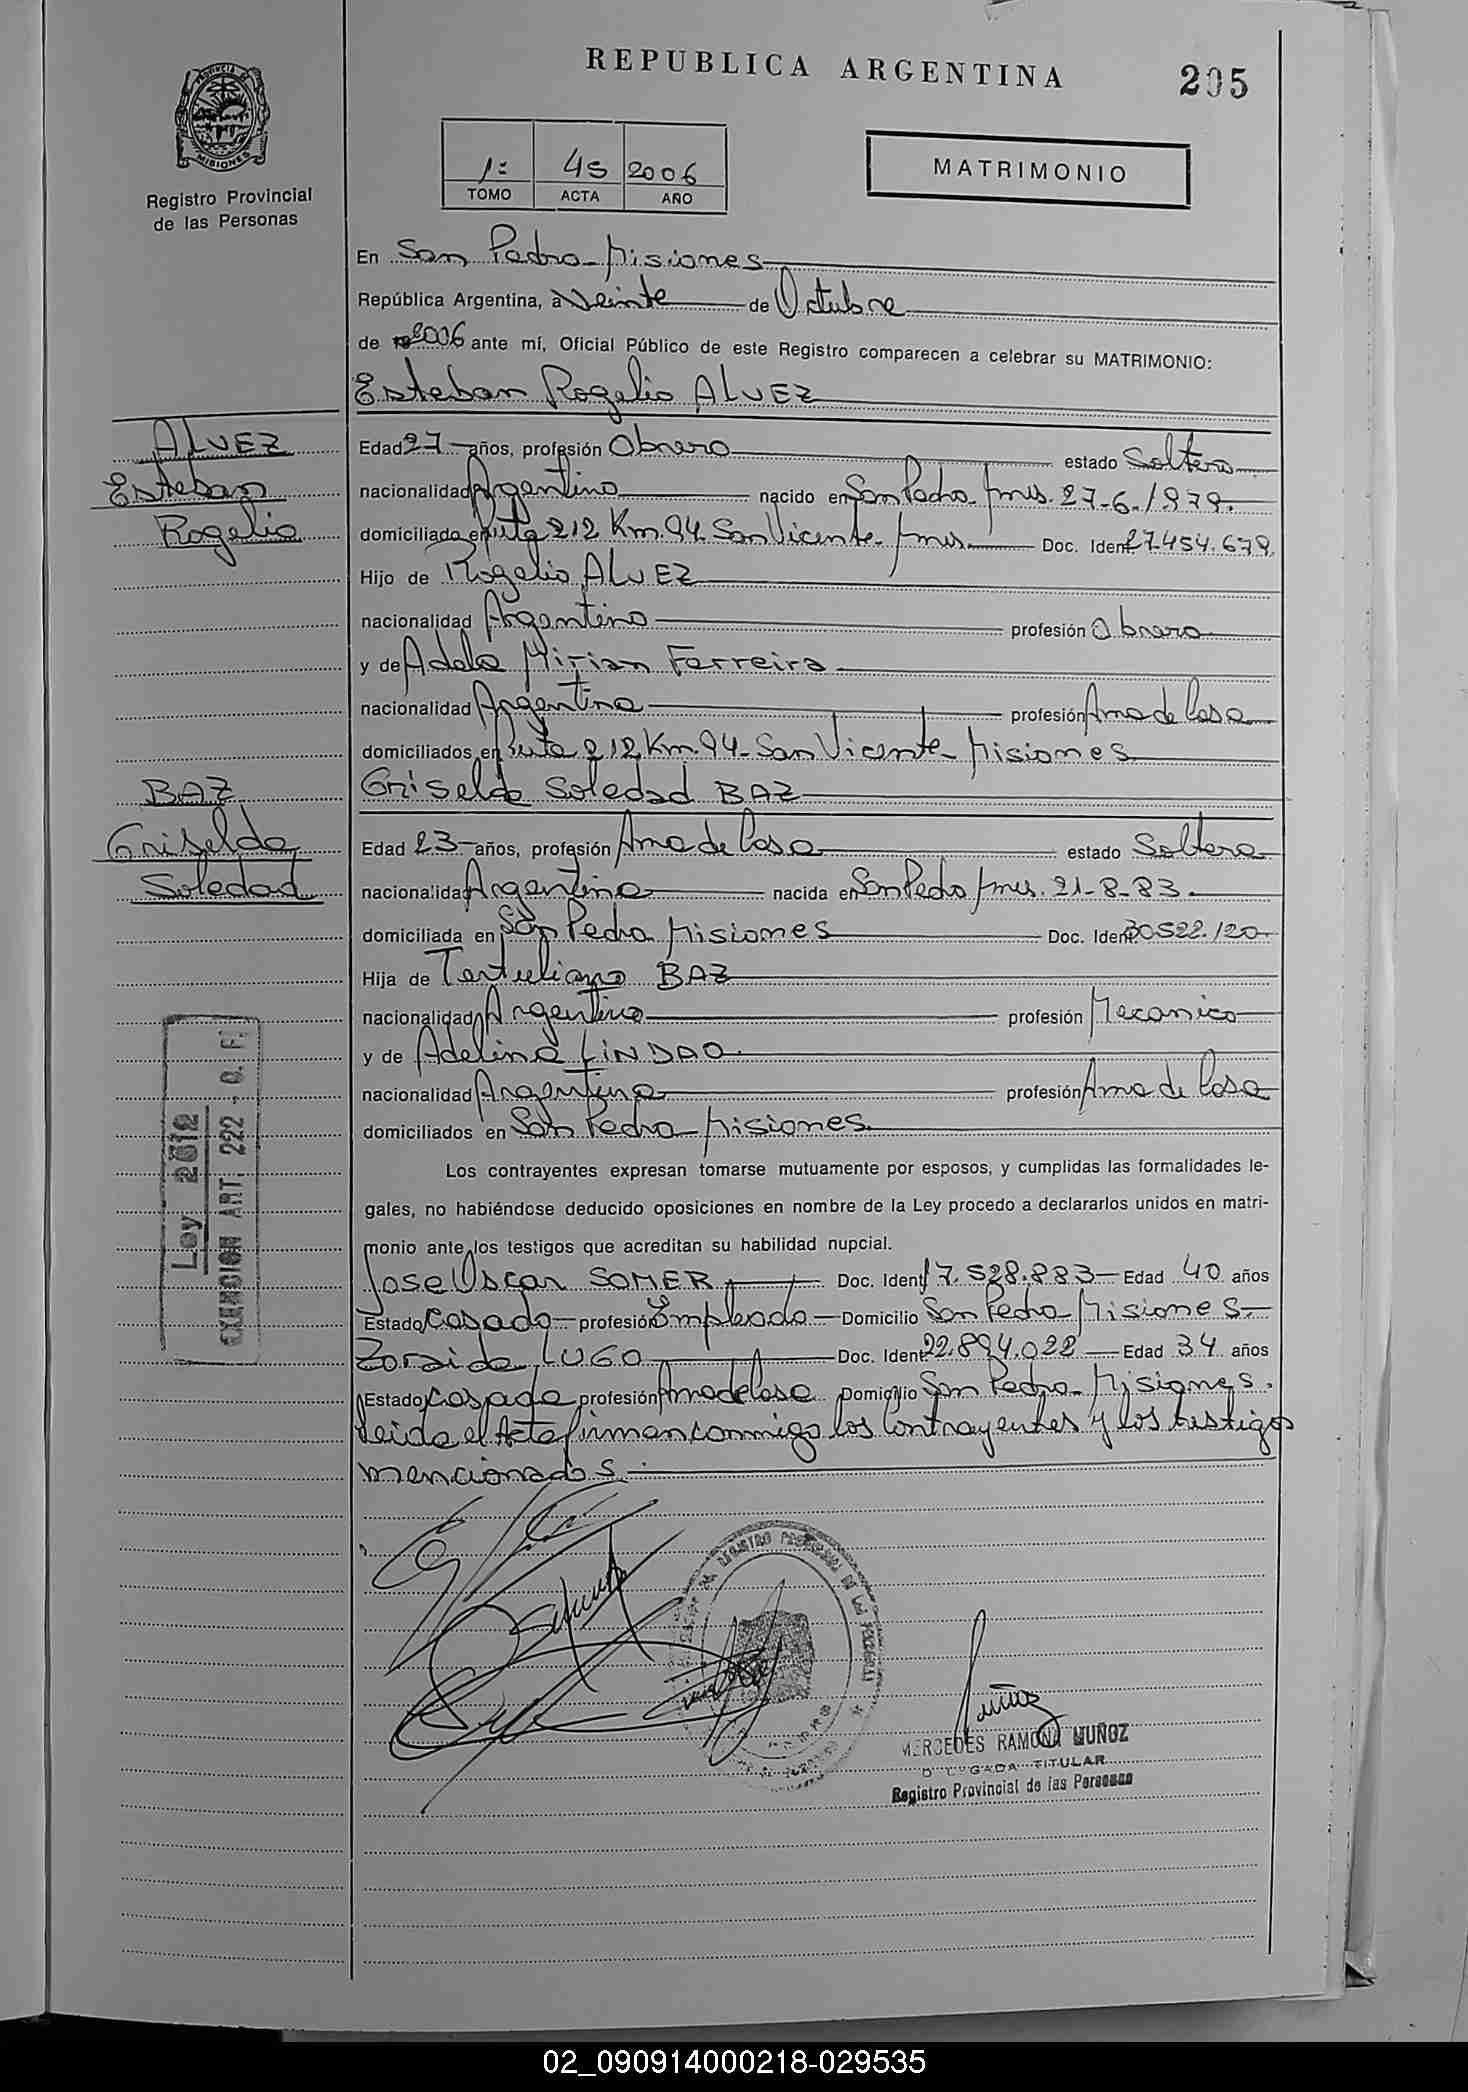 REPUBLICA ARGENTINA
205
PROVINCIA DE
MISIONES
Registro Provincial
de las Personas
1: 45 2006
TOMO ACTA AÑO
MATRIMONIO
En San Pedro - Misiones
República Argentina, a Veinte de Octubre
de 2006 ante mí, Oficial Público de este Registro comparecen a celebrar su MATRIMONIO:
Esteban Rogelio ALVEZ
ALVEZ
Esteban
Rogelio
Edad 27 años, profesión Obrero estado Soltero
nacionalidad Argentino nacido en San Pedro - Mnes. 27-6-1979.
domiciliado en Ruta 212 Km. 94. San Vicente - Mnes. Doc. Ident 27.454.679.
Hijo de Rogelio ALVEZ
nacionalidad Argentino profesión Obrero
y de Adela Mirian Ferreira
nacionalidad Argentina profesión Ama de Casa
domiciliados en Ruta 212 Km. 94 - San Vicente - Misiones
BAZ
Griselda
Soledad
Griselda Soledad BAZ
Edad 23 años, profesión Ama de Casa estado Soltera
nacionalidad Argentina nacida en San Pedro Mnes. 21-8-83.
domiciliada en San Pedro Misiones Doc. Ident 30522.120.
Hija de Tertuliano BAZ
nacionalidad Argentino profesión Mecanico
y de Adelina LINDAO.
nacionalidad Argentina profesión Ama de Casa
domiciliados en San Pedro - Misiones.
Los contrayentes expresan tomarse mutuamente por esposos, y cumplidas las formalidades le-
gales, no habiéndose deducido oposiciones en nombre de la Ley procedo a declararlos unidos en matri-
monio ante los testigos que acreditan su habilidad nupcial.
Jose Oscar SOMER Doc. Ident 17.528.883 Edad 40 años
Estado Casado profesión Empleado Domicilio San Pedro - Misiones.
Zoraida LUGO Doc. Ident 22.894.022 Edad 34 años
Estado Casada profesión Ama de Casa Domicilio San Pedro - Misiones.
Leida el Acta firman conmigo los contrayentes y los testigos
mencionados.
Ley 2612
EXENCION ART. 222 - C. F.
REGISTRO PROVINCIAL DE LAS PERSONAS
Muñoz
MERCEDES RAMONA MUÑOZ
DELEGADA TITULAR
Registro Provincial de las Personas
02_090914000218-029535